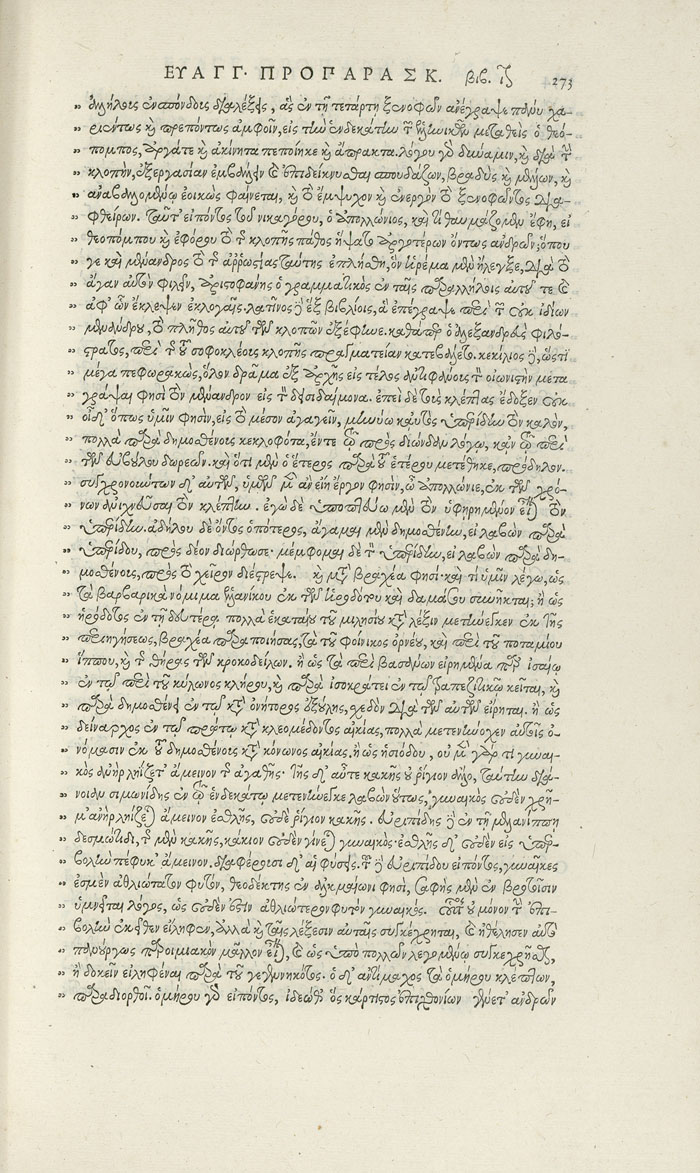 ΕΥΑΓΓ. ΠΡΟΠΑΡΑΣΚ. βιβ. ιʹ 273
ἀλλήλοις ἐν σπόνδοις διαλέξεις, ἃς ἐν τῇ τετάρτῃ ξενοφῶν ἀνέγραψε πάνυ χα-
ριέντως καὶ πρεπόντως ἀμφοῖν, εἰς τὴν ἑνδεκάτην τῶν ἑλληνικῶν μεταθεὶς ὁ θεό-
πομπος, ἀργά τε καὶ ἀκίνητα πεποίηκε καὶ ἄπρακτα. λόγου γὰρ δύναμιν, καὶ διὰ τὴν
κλοπὴν, ἐξεργασίαν ἐμβάλλειν καὶ ἐπιδείκνυσθαι σπουδάζων, βραδὺς καὶ μέλλων, καὶ
ἀναβαλλομένῳ ἐοικὼς φαίνεται, καὶ τὸ ἔμψυχον καὶ ἐνεργὸν τὸ ξενοφῶντος δια-
φθείρων. ταῦτ' εἰπόντος τοῦ νικαγόρου, ὁ ἀπολλώνιος, καὶ τί θαυμάζομεν ἔφη, εἰ
θεοπόμπου καὶ ἐφόρου τὸ τῆς κλοπῆς πάθος ἥψατο ἀργοτέρων ὄντως ἀνδρῶν; ὅπου
γε καὶ μένανδρος τῆς ἀρρωστίας ταύτης ἐπλήσθη, ὃν ἠρέμα μὲν ἤλεγξε, διὰ τὸ
ἄγαν αὐτὸν φιλεῖν, ἀριστοφάνης ὁ γραμματικὸς ἐν ταῖς παραλλήλοις αὐτοῦ τε καὶ
ἀφ' ὧν ἔκλεψεν ἐκλογαῖς. λατῖνος δὲ ἓξ βιβλίοις, ἃ ἐπέγραψε περὶ τῶν οὐκ ἰδίων
μενάνδρου, τὸ πλῆθος αὐτοῦ τῶν κλοπῶν ἐξέφηνε. καθάπερ ὁ ἀλεξανδρεὺς φιλό-
στρατος, περὶ τῆς τοῦ σοφοκλέους κλοπῆς πραγματείαν κατεβάλετο. κεκίλιος δὲ, ὥς τι
μέγα πεφωρακὼς, ὅλον δρᾶμα ἐξ ἀρχῆς εἰς τέλος ἀντιφάνους τὸν οἰωνιστὴν μετα
γράψαι φησὶ τὸν μένανδρον εἰς τὸν δεισιδαίμονα. ἐπεὶ δὲ τοὺς κλέπτας ἔδοξεν οὐκ
οἶδ' ὅπως ὑμῖν φησὶν, εἰς τὸ μέσον ἀγαγεῖν, μηνύω καὐτὸς ὑπερίδην τὸν καλὸν,
πολλὰ παρὰ δημοσθένους κεκλοφότα, ἔν τε τῷ πρὸς διώνδαν λόγῳ, κἀν τῷ περὶ
τῶν εὐβούλου δωρεῶν. καὶ ὅτι μὲν ὁ ἕτερος παρὰ τοῦ ἑτέρου μετέθηκε, πρόδηλον.
συγχρονούντων δ' αὐτῶν, ὑμῶν μὲν ἂν εἴη ἔργον φησὶν, ὦ ἀπολλώνιε, ἐκ τῶν χρό-
νων ἀνιχνεῦσαι τὸν κλέπτην. ἐγὼ δὲ ὑποπτεύω μὲν τὸν ὑφηρημένον εἶναι τὸν
ὑπερίδην. ἀδήλου δὲ ὄντος ὁπότερος, ἄγαμαι μὲν δημοσθένην, εἰ λαβὼν παρὰ
ὑπερίδου, πρὸς δέον διώρθωσε· μέμφομαι δὲ τὸν ὑπερίδην, εἰ λαβὼν παρὰ δη-
μοσθένους, πρὸς τὸ χεῖρον διέστρεψε. καὶ μετὰ βραχέα φησί· καὶ τί ὑμῖν λέγω, ὡς
τὰ βαρβαρικὰ νόμιμα ἑλλανίκου ἐκ τῶν ἡροδότου καὶ δαμάστου συνῆκται; ἢ ὡς
ἡρόδοτος ἐν τῇ δευτέρᾳ πολλὰ ἑκαταίου τοῦ μιλησίου κατὰ λέξιν μετήνεγκεν ἐκ τῆς
περιηγήσεως, βραχέα παραποιήσας, τὰ τοῦ φοίνικος ὀρνέου, καὶ περὶ τοῦ ποταμίου
ἵππου, καὶ τῆς θήρας τῶν κροκοδείλων. ἢ ὡς τὰ περὶ βασάνων εἰρημένα παρ' ἰσαίῳ
ἐν τῷ περὶ τοῦ κύλωνος κλήρου, καὶ παρὰ ἰσοκράτει ἐν τῷ τραπεζιτικῷ κεῖται, καὶ
παρὰ δημοσθένει ἐν τῷ κατὰ ὀνήτορος ἐξούλης, σχεδὸν διὰ τῶν αὐτῶν εἴρηται. ἢ ὡς
δείναρχος ἐν τῷ πρώτῳ κατὰ κλεομέδοντος αἰκίας, πολλὰ μετενήνοχεν αὐτοῖς ὀ-
νόμασιν ἐκ τοῦ δημοσθένους κατὰ κόνωνος αἰκίας, ἢ ὡς ἡσιόδου, οὐ μὲν γάρ τι γυναι-
κὸς ἀνὴρ ληΐζετ' ἄμεινον τῆς ἀγαθῆς· τῆς δ' αὖτε κακῆς οὐ ῥίγιον ἄλλο, ταύτην διά-
νοιαν σιμωνίδης ἐν τῷ ἑνδεκάτῳ μετενήνεγκε λαβὼν οὕτως, γυναικὸς οὐδὲν χρῆ-
μ' ἀνὴρ ληΐζεται ἄμεινον ἐσθλῆς, οὐδὲ ῥίγιον κακῆς. εὐριπίδης δὲ ἐν τῇ μελανίππῃ
δεσμώτιδι, τῆς μὲν κακῆς, κάκιον οὐδὲν γίνεται γυναικός· ἐσθλῆς δ' οὐδὲν εἰς ὑπερ-
βολὴν πέφυκ' ἄμεινον. διαφέρουσι δ' αἱ φύσεις. τοῦ δὲ εὐριπίδου εἰπόντος, γυναῖκες
ἐσμὲν ἀθλιώτατον φυτόν, θεοδέκτης ἐν ἀλκμαίωνι φησὶ, σαφὴς μὲν ἐν βροτοῖσιν
ὑμνεῖται λόγος, ὡς οὐδέν ἐστιν ἀθλιώτερον φυτὸν γυναικός. οὗτος οὐ μόνον τὴν ἐπι-
βολὴν ἐκεῖθεν εἴληφεν, ἀλλὰ καὶ ταῖς λέξεσιν αὐταῖς συγκέχρηται, καὶ ἠθέλησεν αὐτὸ
πανούργως παροιμιακὸν μᾶλλον εἶναι, καὶ ὡς ὑπὸ πολλῶν λεγομένῳ συγκεχρῆσθαι,
ἢ δοκεῖν εἰληφέναι παρὰ τοῦ γεγεννηκότος. ὁ δ' ἀντίμαχος τὰ ὁμήρου κλέπτων,
παραδιορθοῖ. ὁμήρου γὰρ εἰπόντος, ἴδεώθ' ὃς κάρτιστος ἐπιχθονίων γένετ' ἀνδρῶν